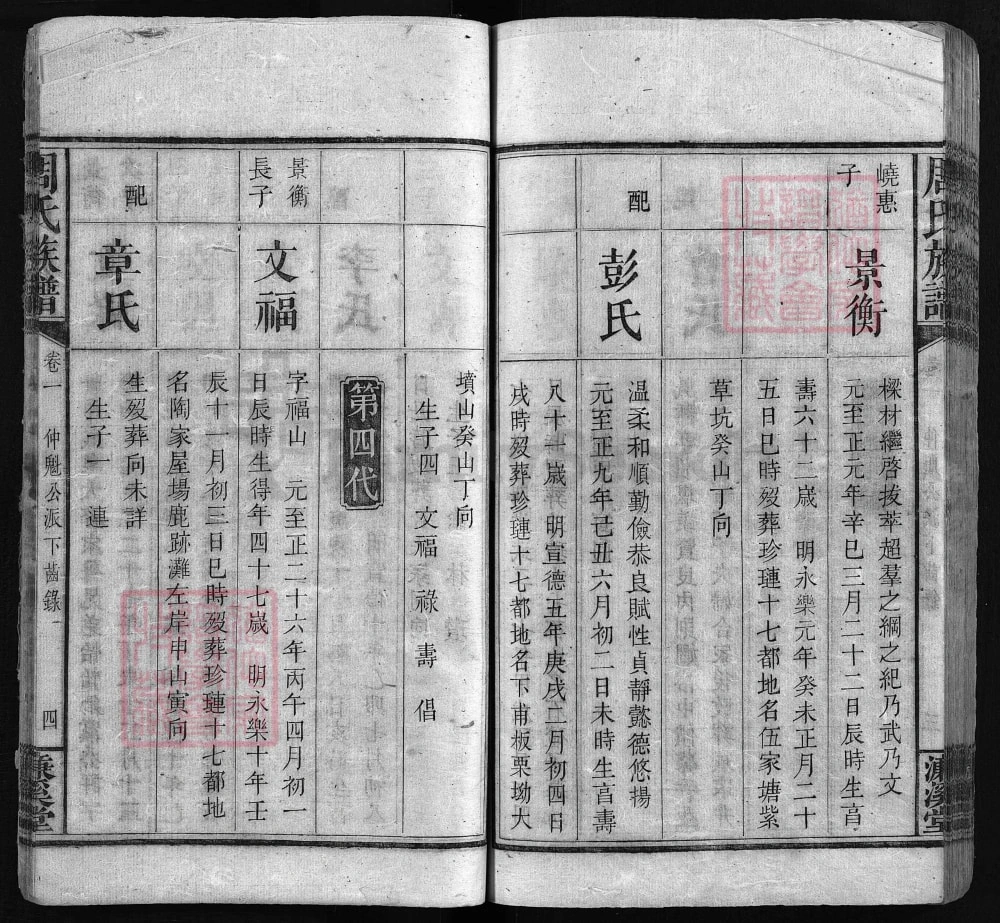 周氏族譜
濂溪堂
嶢惠
子
景衡
樑材繼啓拔萃超羣之綱之紀乃武乃文
元至正元年辛巳三月二十二日辰時生亯
壽六十二歲 明永樂元年癸未正月二十
五日巳時歿葬珍璉十七都地名伍家塘紫
草坑癸山丁向
配
彭氏
温柔和順勤儉恭良賦性貞靜懿德悠揚
元至正九年己丑六月初二日未時生亯壽
八十一歲 明宣德五年庚戌二月初四日
戌時歿葬珍璉十七都地名下甫板栗坳大
墳山癸山丁向
生子四 文福 祿 壽 倡
第四代
景衡
長子
文福
字福山 元至正二十六年丙午四月初一
日辰時生得年四十七歲 明永樂十年壬
辰十一月初三日巳時歿葬珍璉十七都地
名陶家屋場鹿跡灘左岸申山寅向
配
章氏
生歿葬向未詳
生子一 連
周氏族譜
卷一
仲魁公派下齒錄
四
濂溪堂